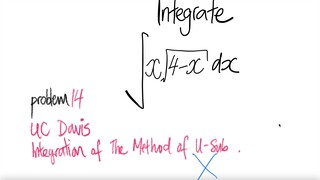 Integrate
∫ x√4-x dx
problem 14
UC Davis
Integration of The Method of U-Sub.